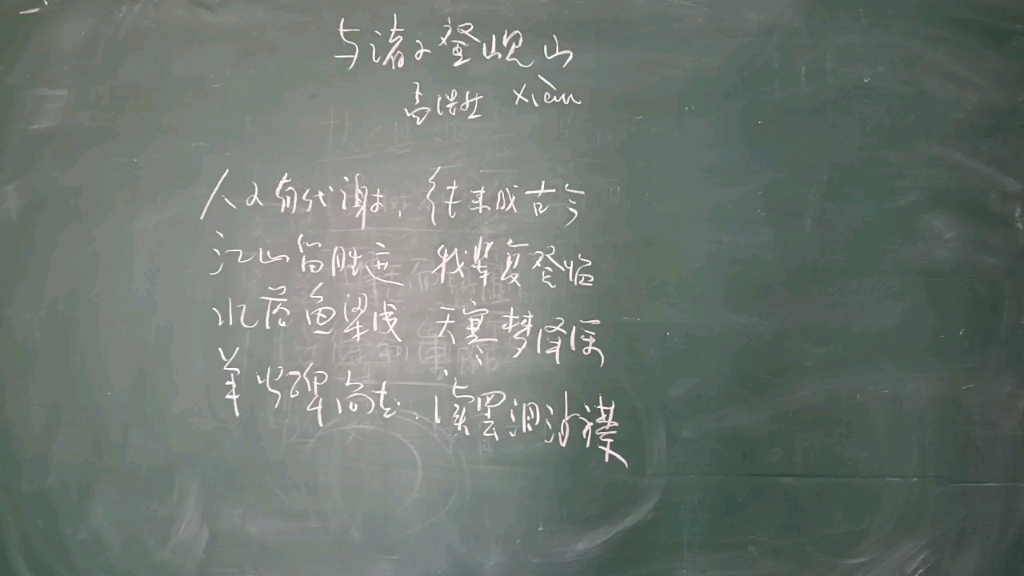 与诸子登岘山
孟浩然 xiàn
人事有代谢，往来成古今
江山留胜迹 我辈复登临
水落鱼梁浅 天寒梦泽深
羊公碑尚在 读罢泪沾襟